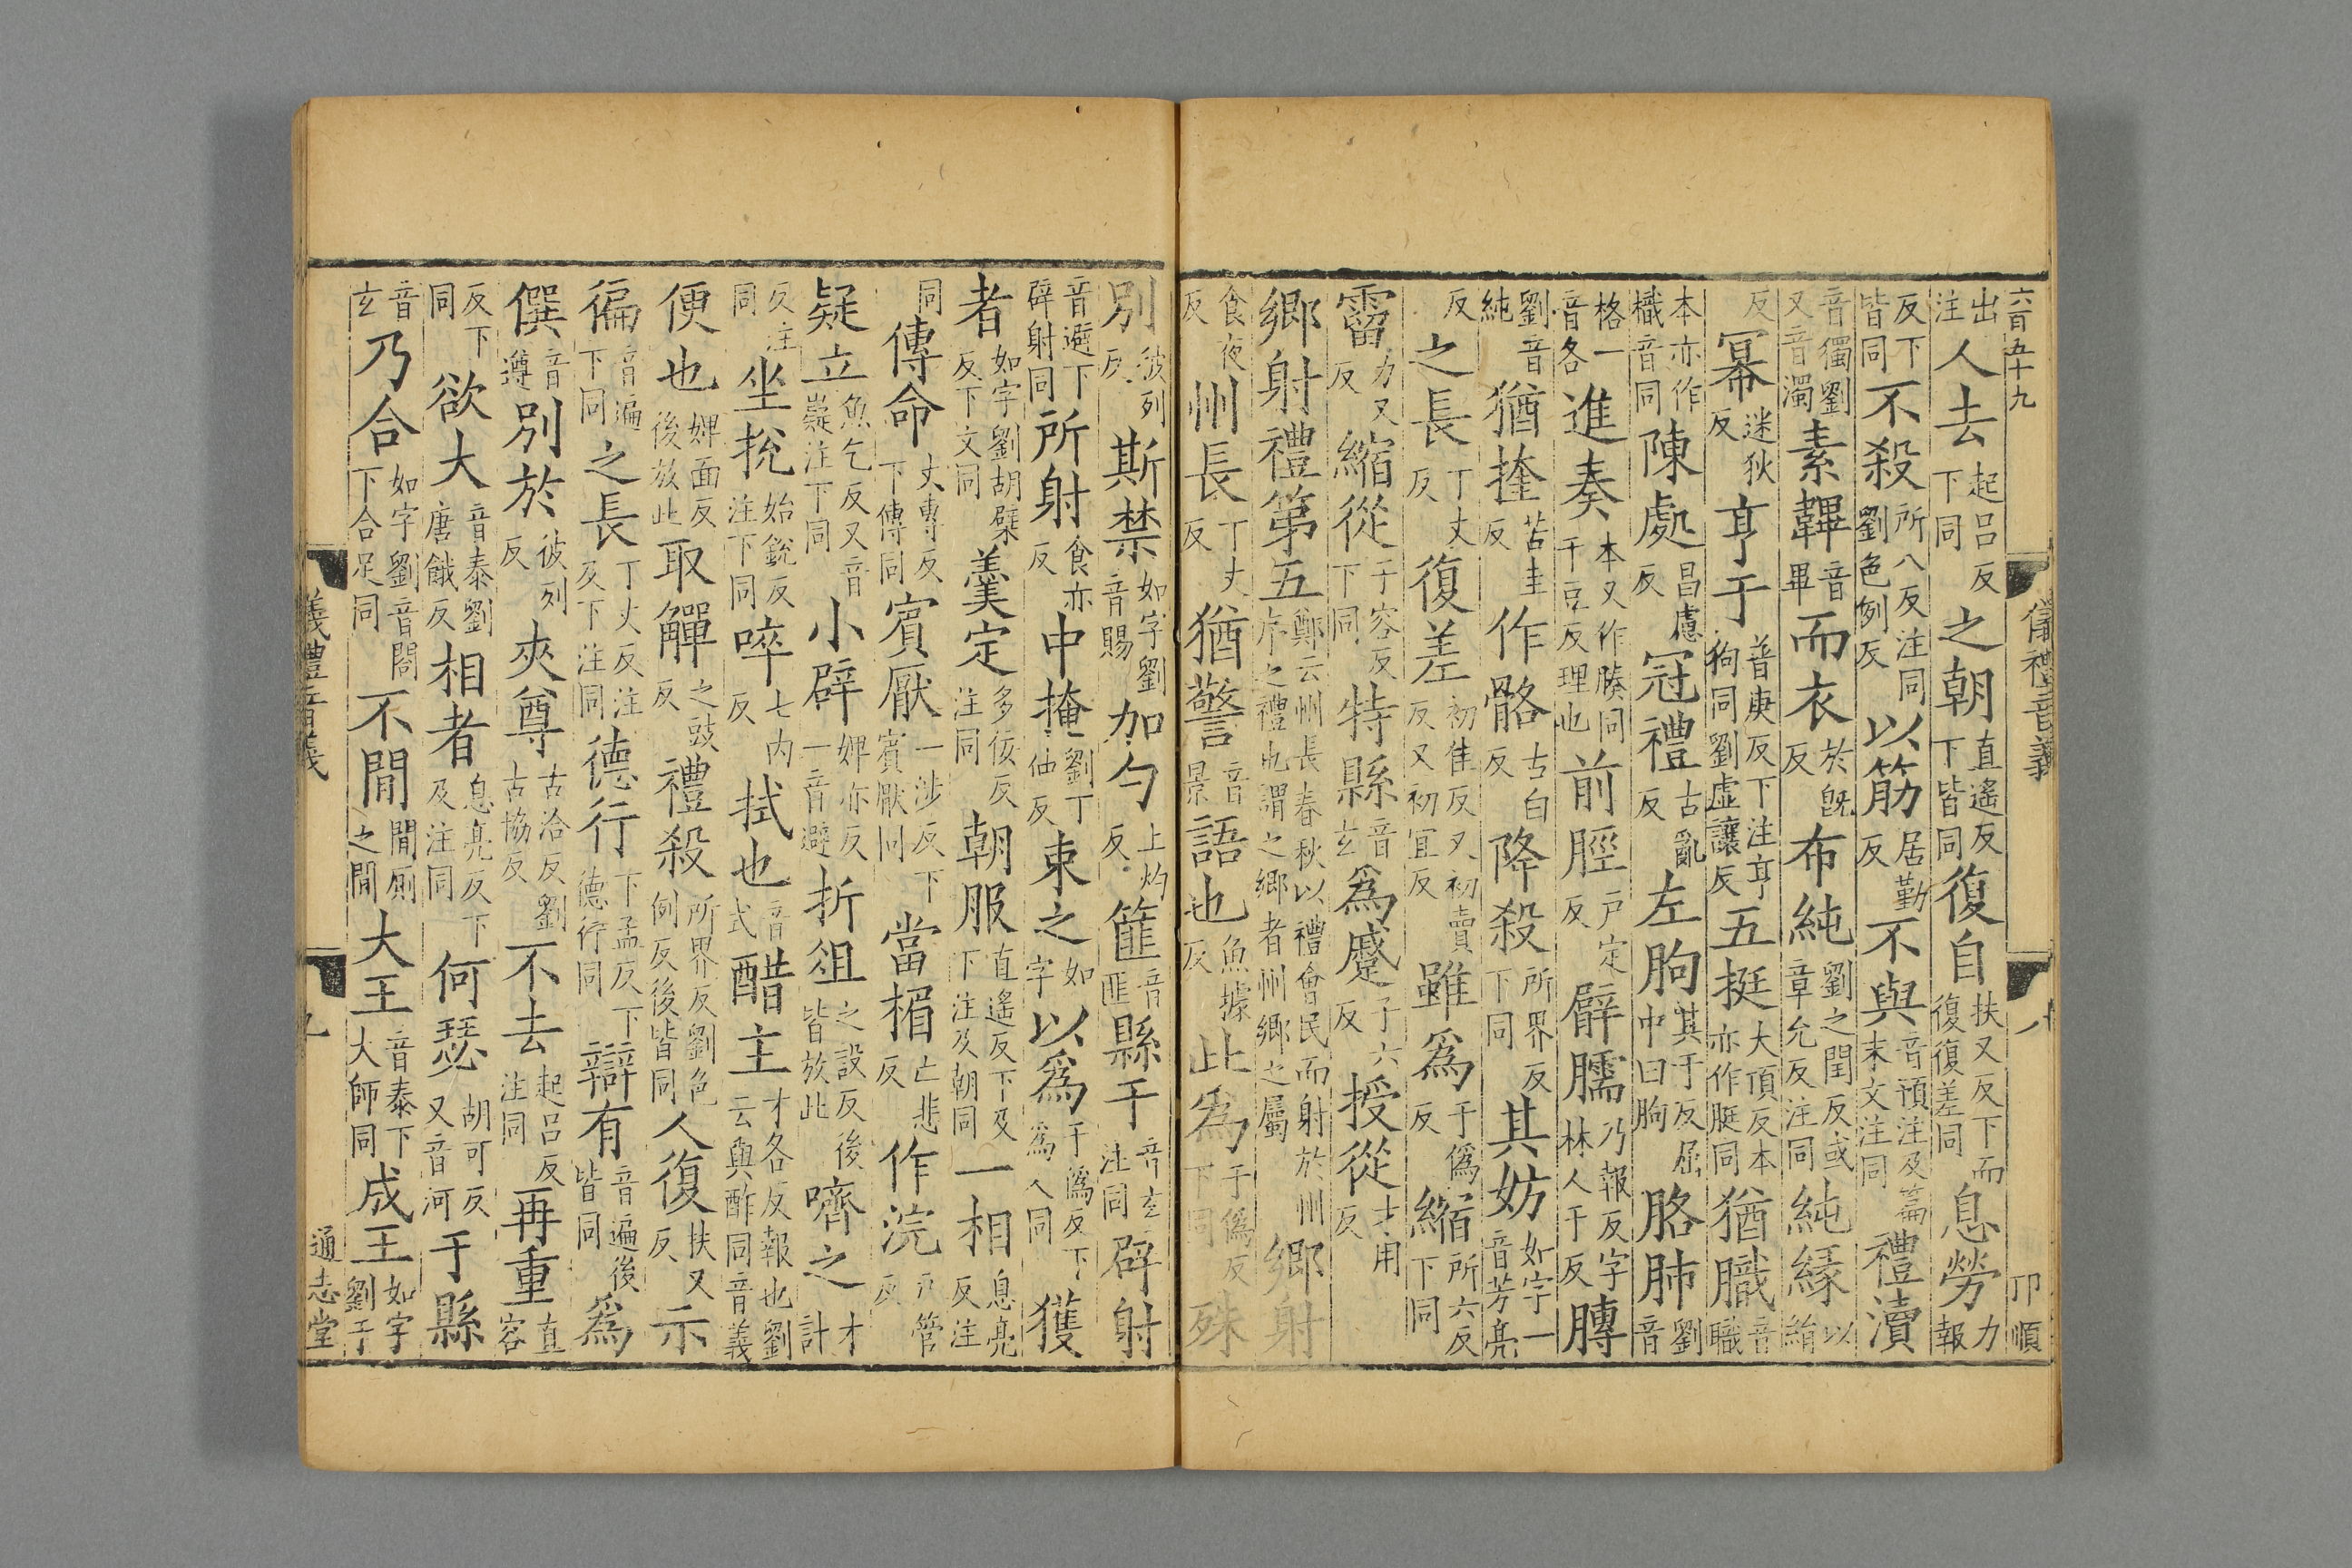 六百五十九 儀禮音義 八 卬順
出注人去起呂反下同之朝直遙反下皆同復自扶又反下而復復差同息勞力報
反下皆同不殺所八反注同劉色例反以筋居勤反不與音預注及篇末文注同禮瀆
音獨劉又音濁素韠音畢而衣於旣反布純劉之閏反或章允反注同純緣以絹
反冪迷狄反亨于普庚反下注亨狗同劉虛讓反五挺大頂反本亦作脡同猶膱音職
本亦作樴音同陳處昌慮反冠禮古亂反左朐其于反屈中曰朐胳肺劉音
格一音各進奏本又作腠同千豆反理也前脛戶定反臂臑乃報反字林人于反膊
劉音純猶苦圭反作骼古白反降殺所界反下同其妨如字一音芳亮
反之長丁丈反復差初佳反又初賣反又初宜反雖爲于僞反縮所六反下同
霤力又反縮從子容反下同特縣音玄爲蹙子六反授從才用反
鄉射禮第五鄭云州長春秋以禮會民而射於州序之禮也謂之鄉者州鄉之屬鄉射
食夜反州長丁丈反猶警音景語也魚據反此爲于僞反下同殊
別彼列反斯禁如字劉音賜加勺上灼反篚音匪縣于音玄注同辟射
音避下辟射同所射食亦反中掩劉丁仲反束之如字以爲于僞反下爲人同獲
者如字劉胡檗反下文同羹定多佞反注同朝服直遙反下及下注及朝同一相息亮反注
同傳命丈專反下傳同賓厭一涉反下賓厭同當楣亡悲反作浣戶管反
疑立魚乞反又音嶷注下同小辟婢亦反一音避折俎之設反後皆放此嚌之才計
反注同坐挩始銳反注下同啐七內反拭也音式醋主才各反報也劉云與酢同音義
便也婢面反後放此取觶之豉反禮殺所界反劉色例反後皆同人復扶又反示
徧音遍下同之長丁丈反注反下注同德行下孟反下德行同辯有音遍後皆同爲
僎音遵別於彼列反夾尊古洽反劉古協反不去起呂反注同再重直容
反下同欲大音泰劉唐餓反相者息亮反下及注同何瑟胡可反又音河于縣
音玄乃合如字劉音閤下合足同不閒閒厠之閒大王音泰下大師同成王如字劉于
儀禮音義 九 通志堂